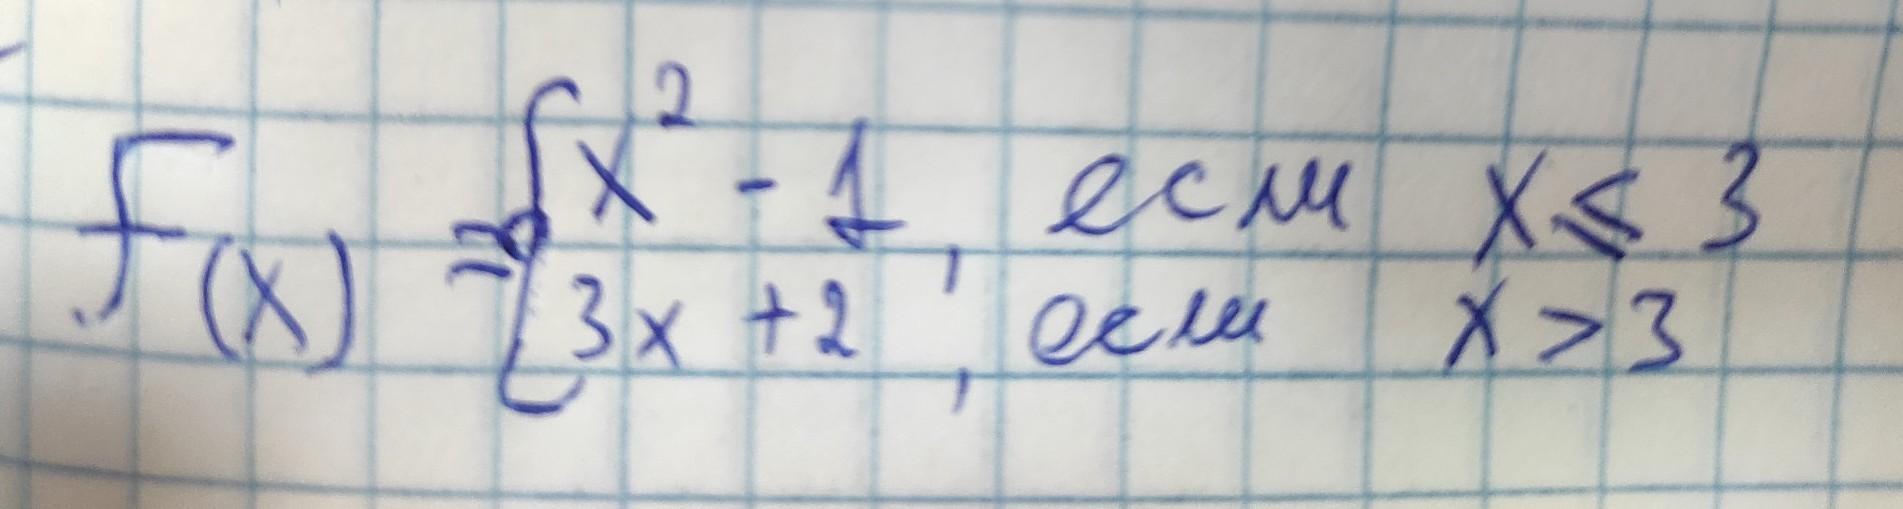 f(x) = { x² - 1, если x ⩽ 3
3x + 2, если x > 3